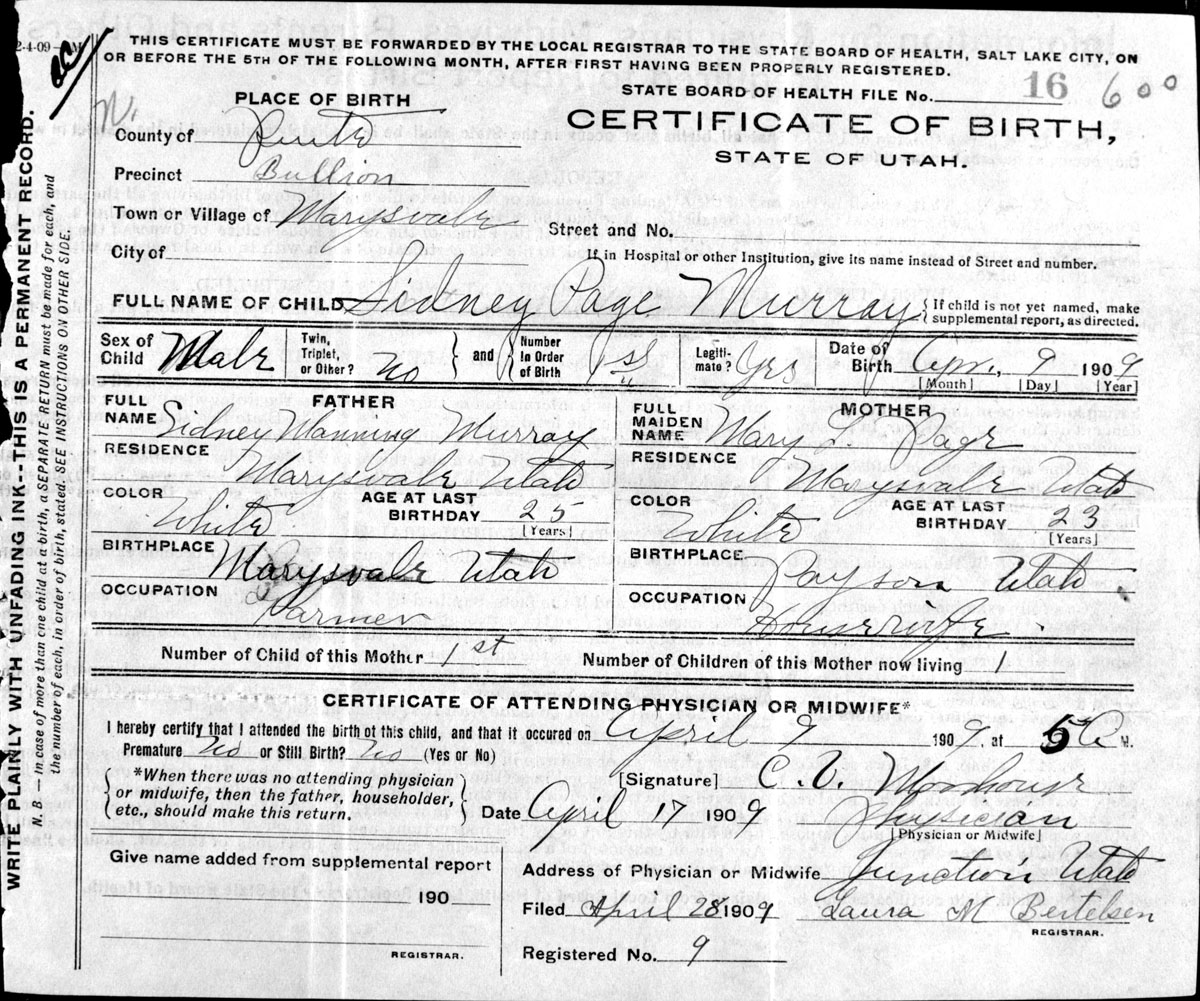 2-4-09
THIS CERTIFICATE MUST BE FORWARDED BY THE LOCAL REGISTRAR TO THE STATE BOARD OF HEALTH, SALT LAKE CITY, ON
OR BEFORE THE 5TH OF THE FOLLOWING MONTH, AFTER FIRST HAVING BEEN PROPERLY REGISTERED.
STATE BOARD OF HEALTH FILE No. 16 600
PLACE OF BIRTH
CERTIFICATE OF BIRTH,
STATE OF UTAH.
County of Piute
Precinct Bullion
Town or Village of Marysvale
Street and No.
City of
If in Hospital or other Institution, give its name instead of Street and number.
FULL NAME OF CHILD Sidney Page Murray
{If child is not yet named, make
supplemental report, as directed.
Sex of Child Male
Twin, Triplet, or Other? No
and
Number in Order of Birth 1st
Legiti-mate? Yes
Date of Birth Apr. 9 1909
[Month] [Day] [Year]
FATHER
FULL NAME Sidney Manning Murray
RESIDENCE Marysvale Utah
COLOR White
AGE AT LAST BIRTHDAY 25
[Years]
BIRTHPLACE Marysvale Utah
OCCUPATION Farmer
MOTHER
FULL MAIDEN NAME Mary L. Page
RESIDENCE Marysvale Utah
COLOR White
AGE AT LAST BIRTHDAY 23
[Years]
BIRTHPLACE Payson Utah
OCCUPATION Housewife
Number of Child of this Mother 1st
Number of Children of this Mother now living 1
CERTIFICATE OF ATTENDING PHYSICIAN OR MIDWIFE*
I hereby certify that I attended the birth of this child, and that it occured on April 9 1909, at 5 P M.
Premature? No or Still Birth? No (Yes or No)
*When there was no attending physician
or midwife, then the father, householder,
etc., should make this return.
[Signature] C. V.
Date April 17 1909
Physician
[Physician or Midwife]
Give name added from supplemental report
190
REGISTRAR.
Address of Physician or Midwife Junction Utah
Filed April 28 1909 Laura M Bertelsen
REGISTRAR.
Registered No. 9
WRITE PLAINLY WITH UNFADING INK--THIS IS A PERMANENT RECORD.
N. B. — In case of more than one child at a birth, a SEPARATE RETURN must be made for each, and
the number of each, in order of birth, stated. SEE INSTRUCTIONS ON OTHER SIDE.